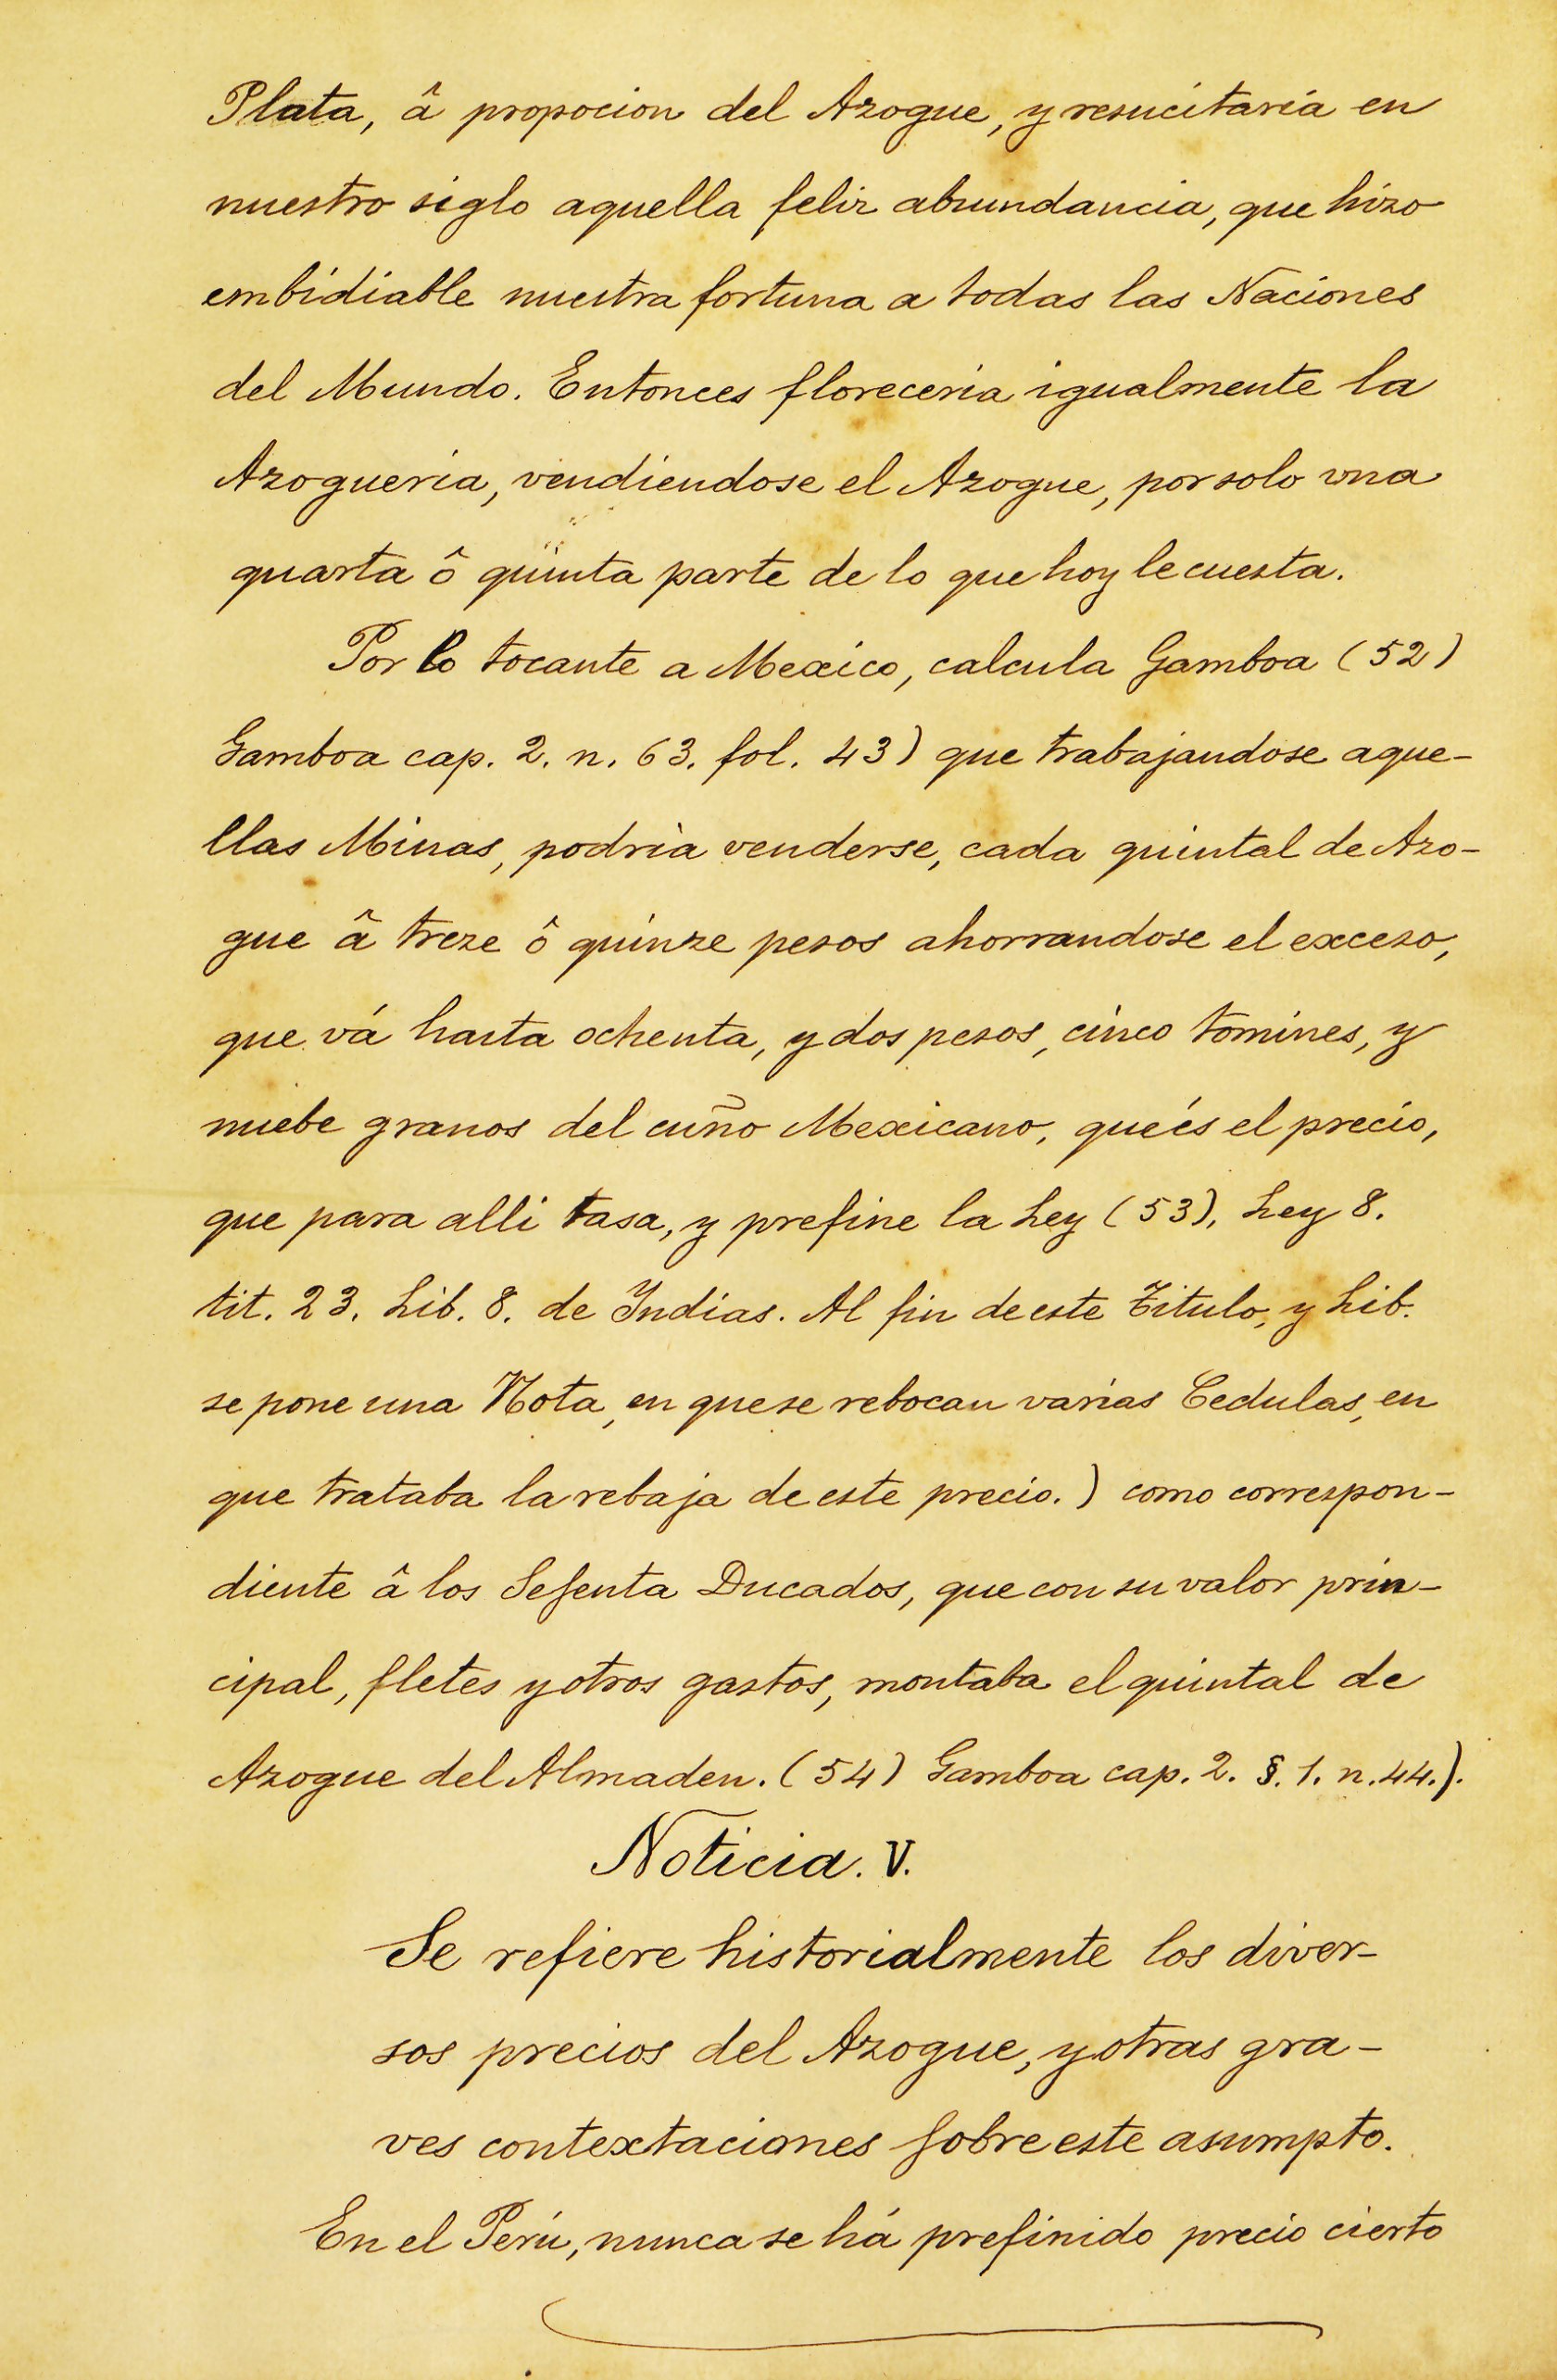 Plata, â propocion del Azogue, y resucitaria en
nuestro siglo aquella feliz abundancia, que hizo
embidiable nuestra fortuna a todas las Naciones
del Mundo. Entonces floreceria igualmente la
Azogueria, vendiendose el Azogue, por solo vna
quarta ô quinta parte de lo que hoy le cuesta.
Por lo tocante a Mexico, calcula Gamboa (52)
Gamboa cap. 2. n. 63. fol. 43) que trabajandose aque-
llas Minas, podria venderse, cada quintal de Azo-
gue â treze ô quinze pesos ahorrandose el exceso,
que vá hasta ochenta, y dos pesos, cinco tomines, y
nuebe granos del cuño Mexicano, que és el precio,
que para alli tasa, y prefine la Ley (53), Ley 8.
tit. 23. Lib. 8. de Yndias. Al fin de este Titulo, y Lib.
se pone una Nota, en que se rebocan varias Cedulas, en
que trataba la rebaja de este precio.) como correspon-
diente â los Sesenta Ducados, que con su valor prin-
cipal, fletes y otros gastos, montaba el quintal de
Azogue del Almaden. (54) Gamboa cap. 2. §. 1. n. 44.).
Noticia. V.
Se refiere historialmente los diver-
sos precios del Azogue, y otras gra-
ves contextaciones sobre este asumpto.
En el Perú, nunca se há prefinido precio cierto